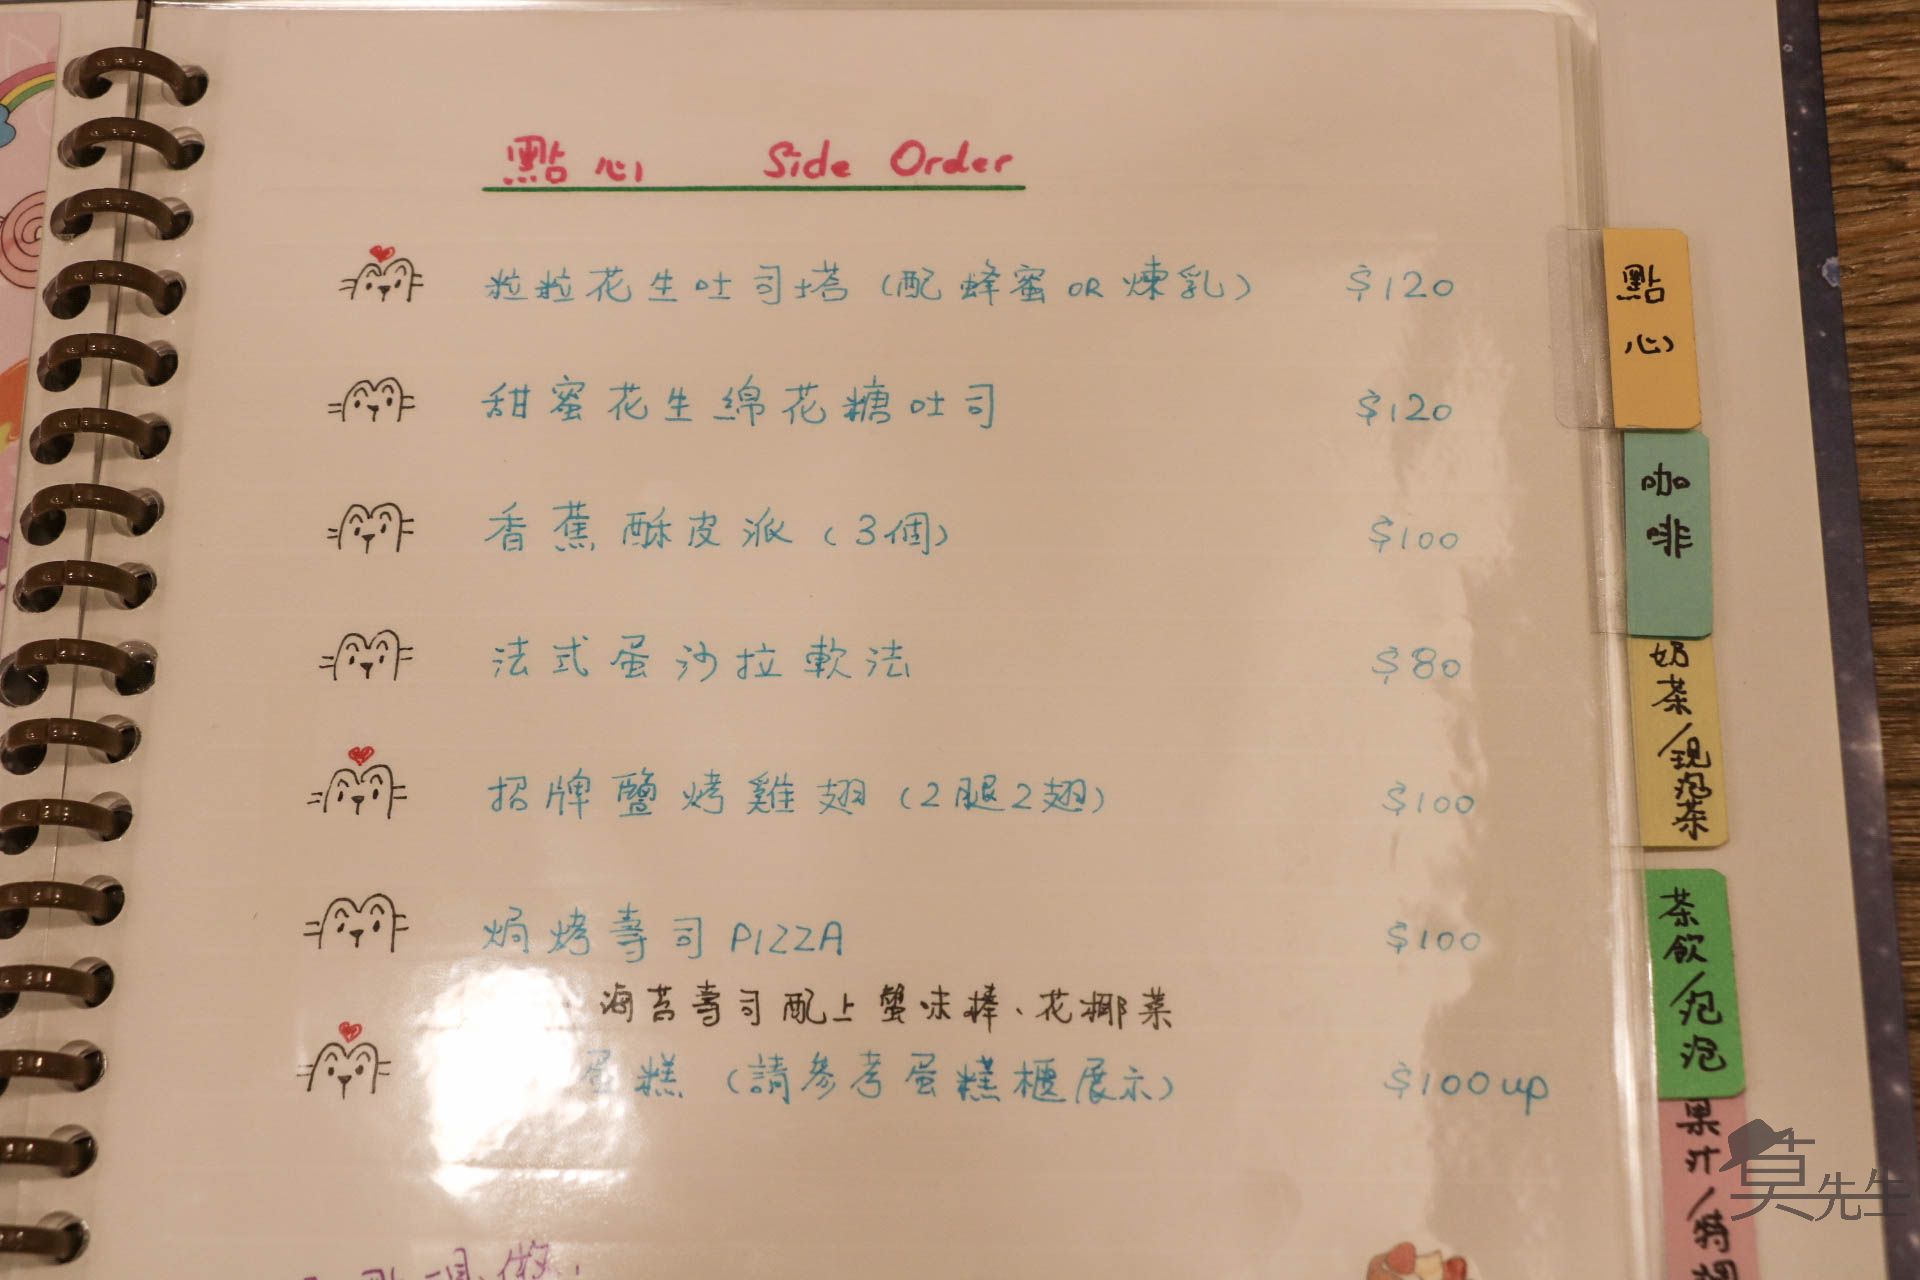 點心 Side Order
粒粒花生吐司塔（配蜂蜜OR煉乳） $120
甜蜜花生綿花糖吐司 $120
香蕉酥皮派（3個） $100
法式蛋沙拉軟法 $80
招牌鹽烤雞翅（2腿2翅） $100
焗烤壽司PIZZA $100
海苔壽司配上蟹味棒、花椰菜
蛋糕（請參考蛋糕櫃展示） $100up
點心
咖啡
奶茶/現泡茶
茶飲/泡泡
果汁/特調
莫先生